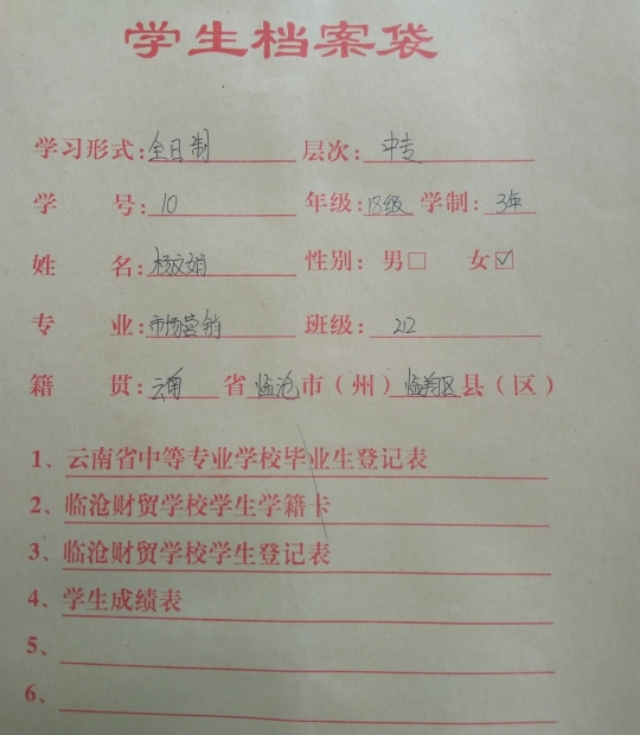 学生档案袋
学习形式:全日制 层次:中专
学 号:10 年级:18级 学制:3年
姓 名:杨文娟 性别: 男□ 女☑
专 业:市场营销 班级: 212
籍 贯:云南 省 临沧 市（州）临翔区 县（区）
1、云南省中等专业学校毕业生登记表
2、临沧财贸学校学生学籍卡
3、临沧财贸学校学生登记表
4、学生成绩表
5、
6、